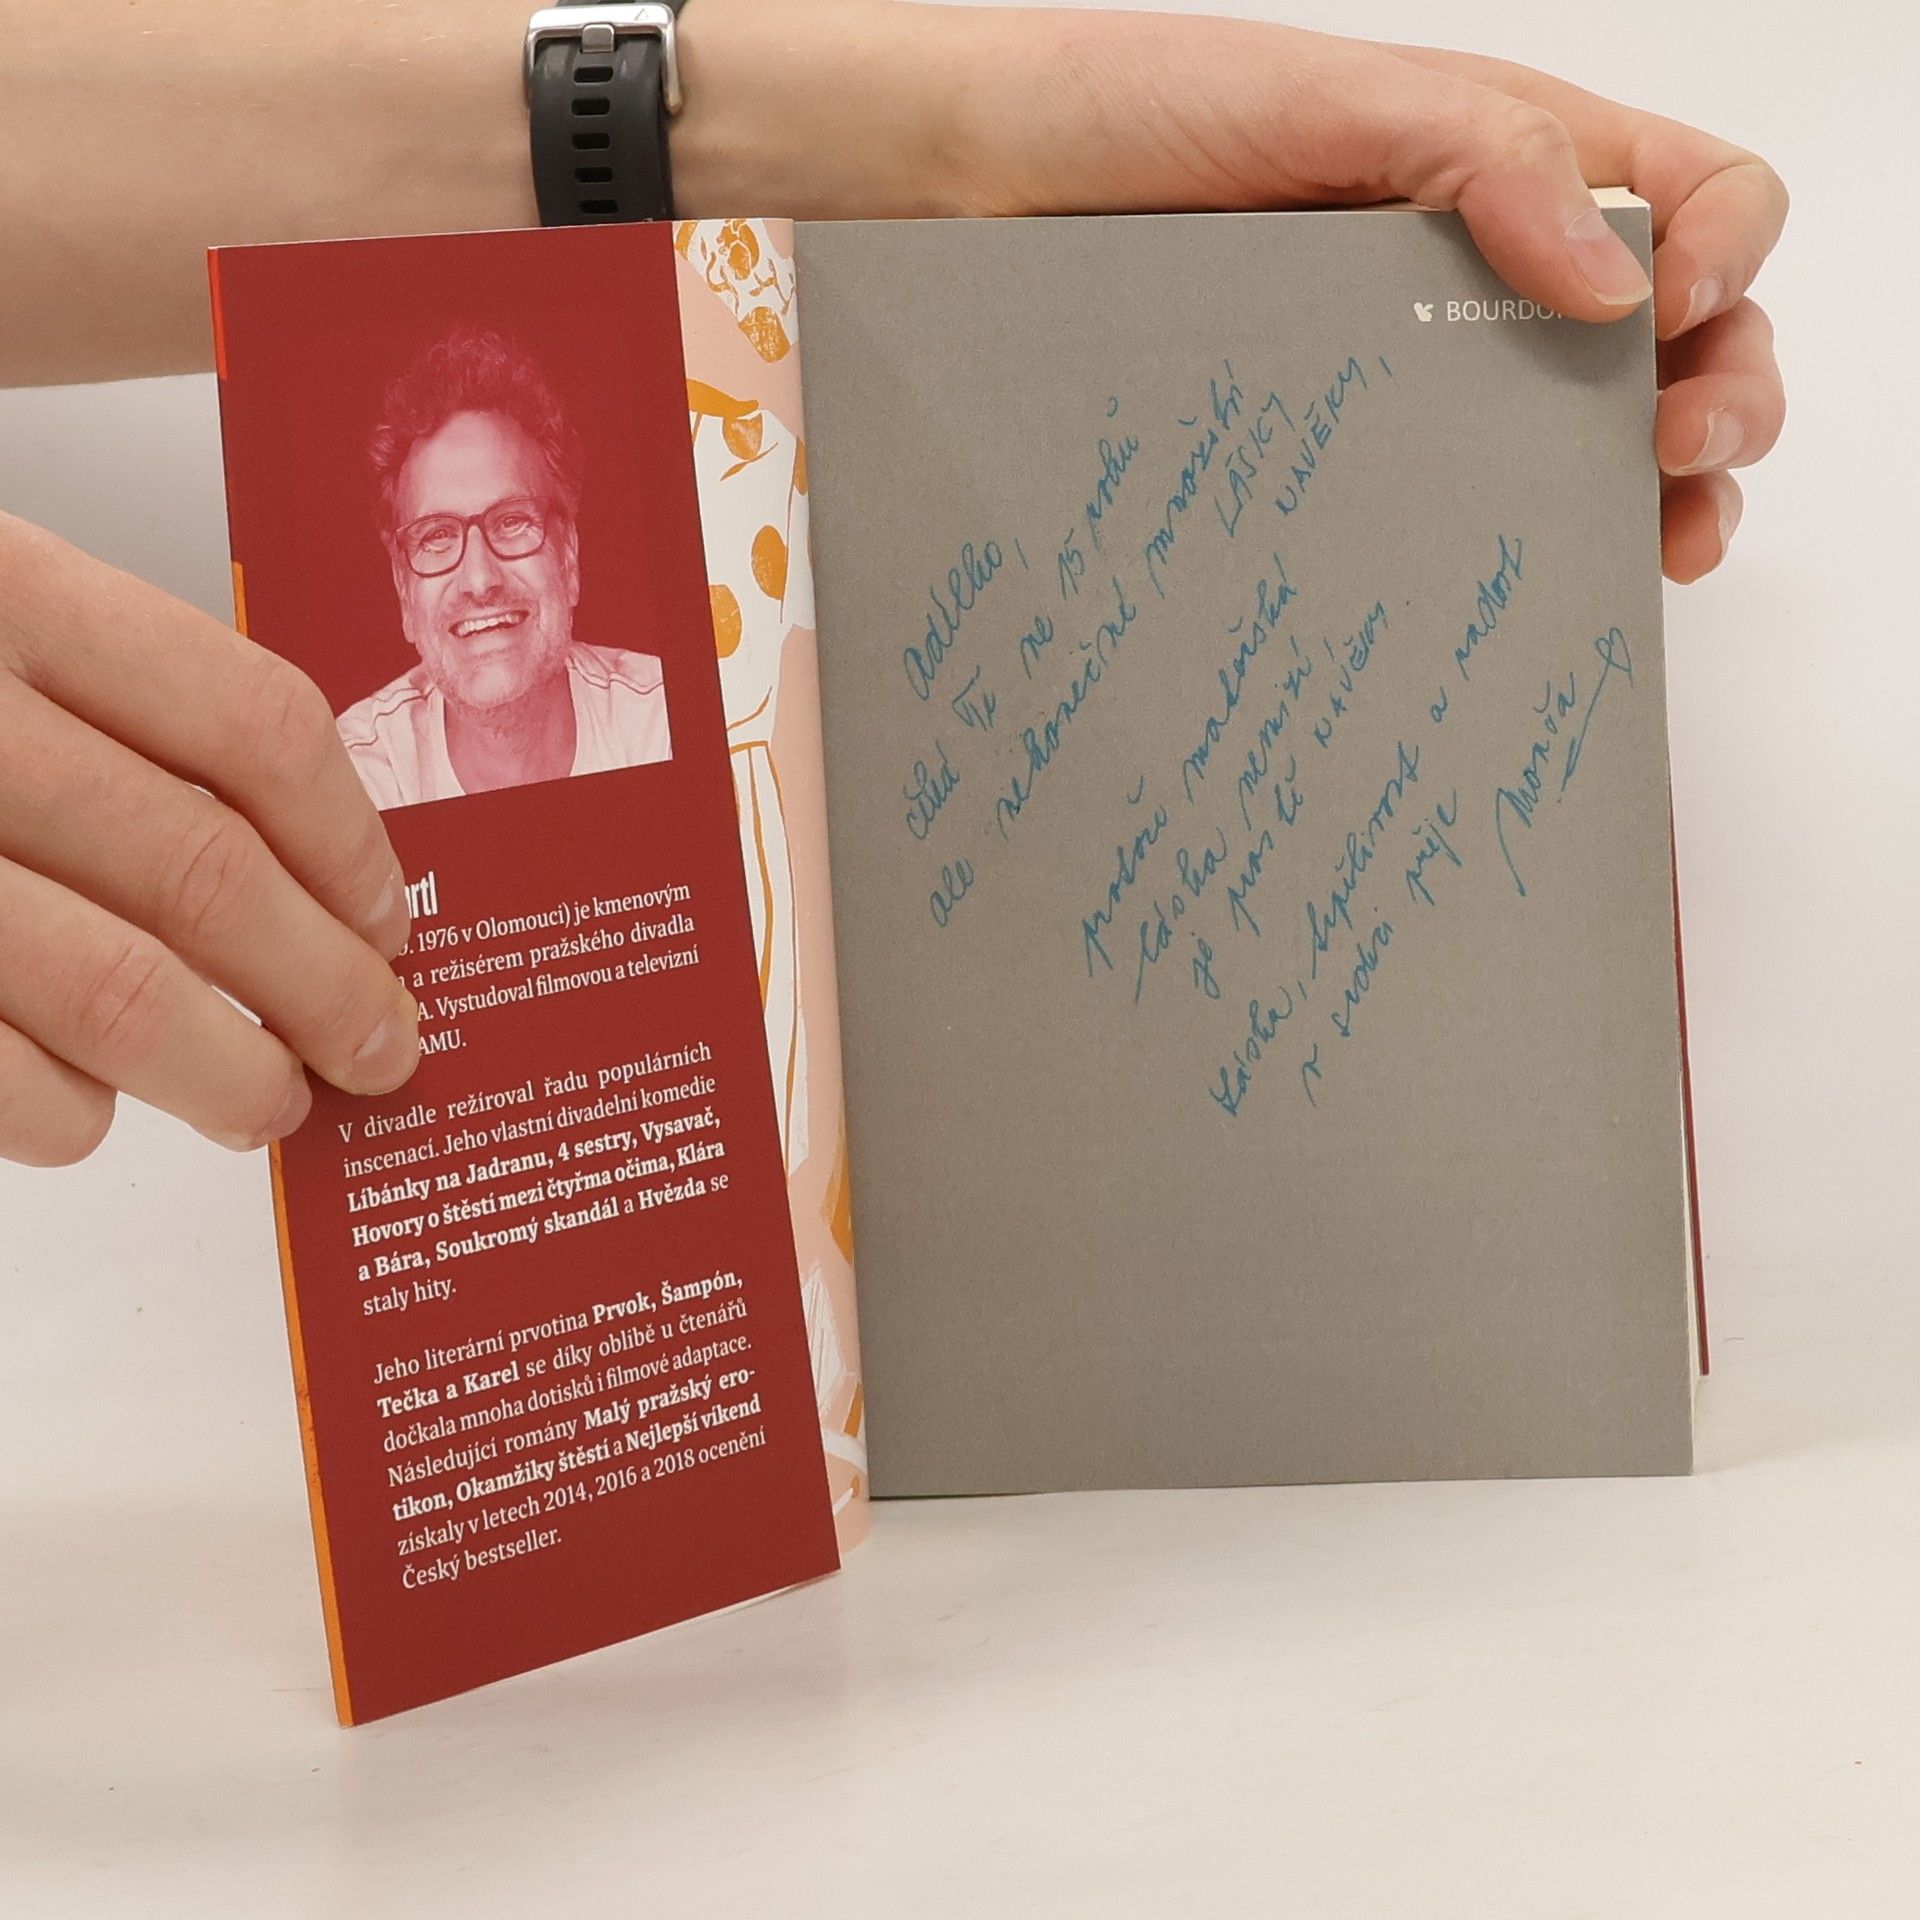 rtl
. 1976 v Olomouci) je kmenovým
a režisérem pražského divadla
A. Vystudoval filmovou a televizní
AMU.
V divadle režíroval řadu populárních
inscenací. Jeho vlastní divadelní komedie
Líbánky na Jadranu, 4 sestry, Vysavač,
Hovory o štěstí mezi čtyřma očima, Klára
a Bára, Soukromý skandál a Hvězda se
staly hity.
Jeho literární prvotina Prvok, Šampón,
Tečka a Karel se díky oblibě u čtenářů
dočkala mnoha dotisků i filmové adaptace.
Následující romány Malý pražský ero-
tikon, Okamžiky štěstí a Nejlepší víkend
získaly v letech 2014, 2016 a 2018 ocenění
Český bestseller.
BOURDO
Adélko,
čeká Tě ne 15 roků
ale nekonečné množství
LÁSKY
NAVĚKY,
protože mateřská
láska nemizí,
je prostě NAVĚKY.
Lásku, trpělivost a radost
v srdci přeje
Monča